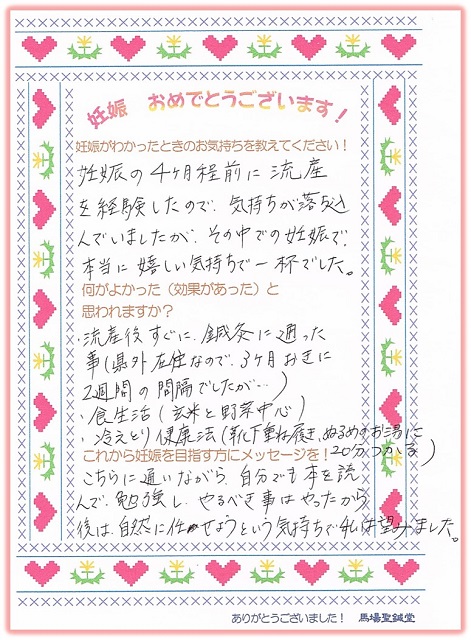 妊娠 おめでとうございます！
妊娠がわかったときのお気持ちを教えてください！
妊娠の4ヶ月程前に流産
を経験したので、気持ちが落ち込
んでいましたが、その中での妊娠で、
本当に嬉しい気持ちで一杯でした。
何がよかった（効果があった）と
思われますか？
・流産後すぐに、鍼灸に通った
事（県外在住なので、3ヶ月おきに
2週間の間隔でしたが…）
・食生活（玄米と野菜中心）
・冷えとり健康法（靴下重ね履き、ぬるめのお湯に
20分つかる）
これから妊娠を目指す方にメッセージを！
こちらに通いながら、自分でも本を読
んで、勉強し、やるべき事はやったから
後は、自然に任せようという気持ちで私は望みました。
ありがとうございました！ 馬場聖鍼堂